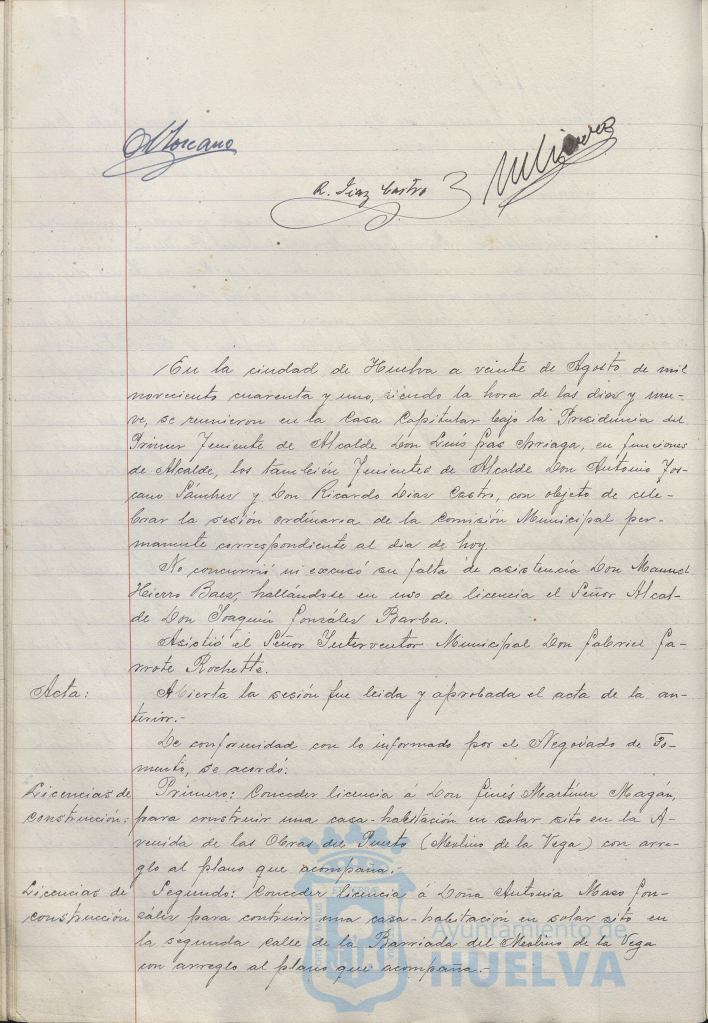 A Toscano
R. Diaz Castro
En la ciudad de Huelva a veinte de Agosto de mil
noveciento cuarenta y uno, siendo la hora de las diez y nue-
ve, se reunieron en la Casa Capitular bajo la Presidencia del
Primer Teniente de Alcalde Don Luis Gas Arriaga, en funciones
de Alcalde, los también Tenientes de Alcalde Don Antonio Tos-
cano Sánchez y Don Ricardo Diaz Castro, con objeto de cele-
brar la sesión ordinaria de la Comisión Municipal per-
manente correspondiente al dia de hoy.
No concurrió ni excusó su falta de asistencia Don Manuel
Hierro Baez, hallándose en uso de licencia el Señor Alcal-
de Don Joaquín González Barba.
Asistió el Señor Interventor Municipal Don Gabriel Ga-
rrote Rochette.
Acta: Abierta la sesión fue leida y aprobada el acta de la an-
terior.-
De conformidad con lo informado por el Negociado de Fo-
mento, se acordó:
Licencias de Primero: Conceder licencia á Don Ginés Martínez Magán,
construcción: para construir una casa-habitación en solar sito en la A-
venida de las Obras del Puerto (Molino de la Vega) con arre-
glo al plano que acompaña.-
Licencias de Segundo: Conceder licencia á Doña Antonia Mazo Gon-
construcción zález para contruir una casa-habitación en solar sito en
la segunda calle de la Barriada del Molino de la Vega
con arreglo al plano que acompaña.-
Ayuntamiento de
HUELVA